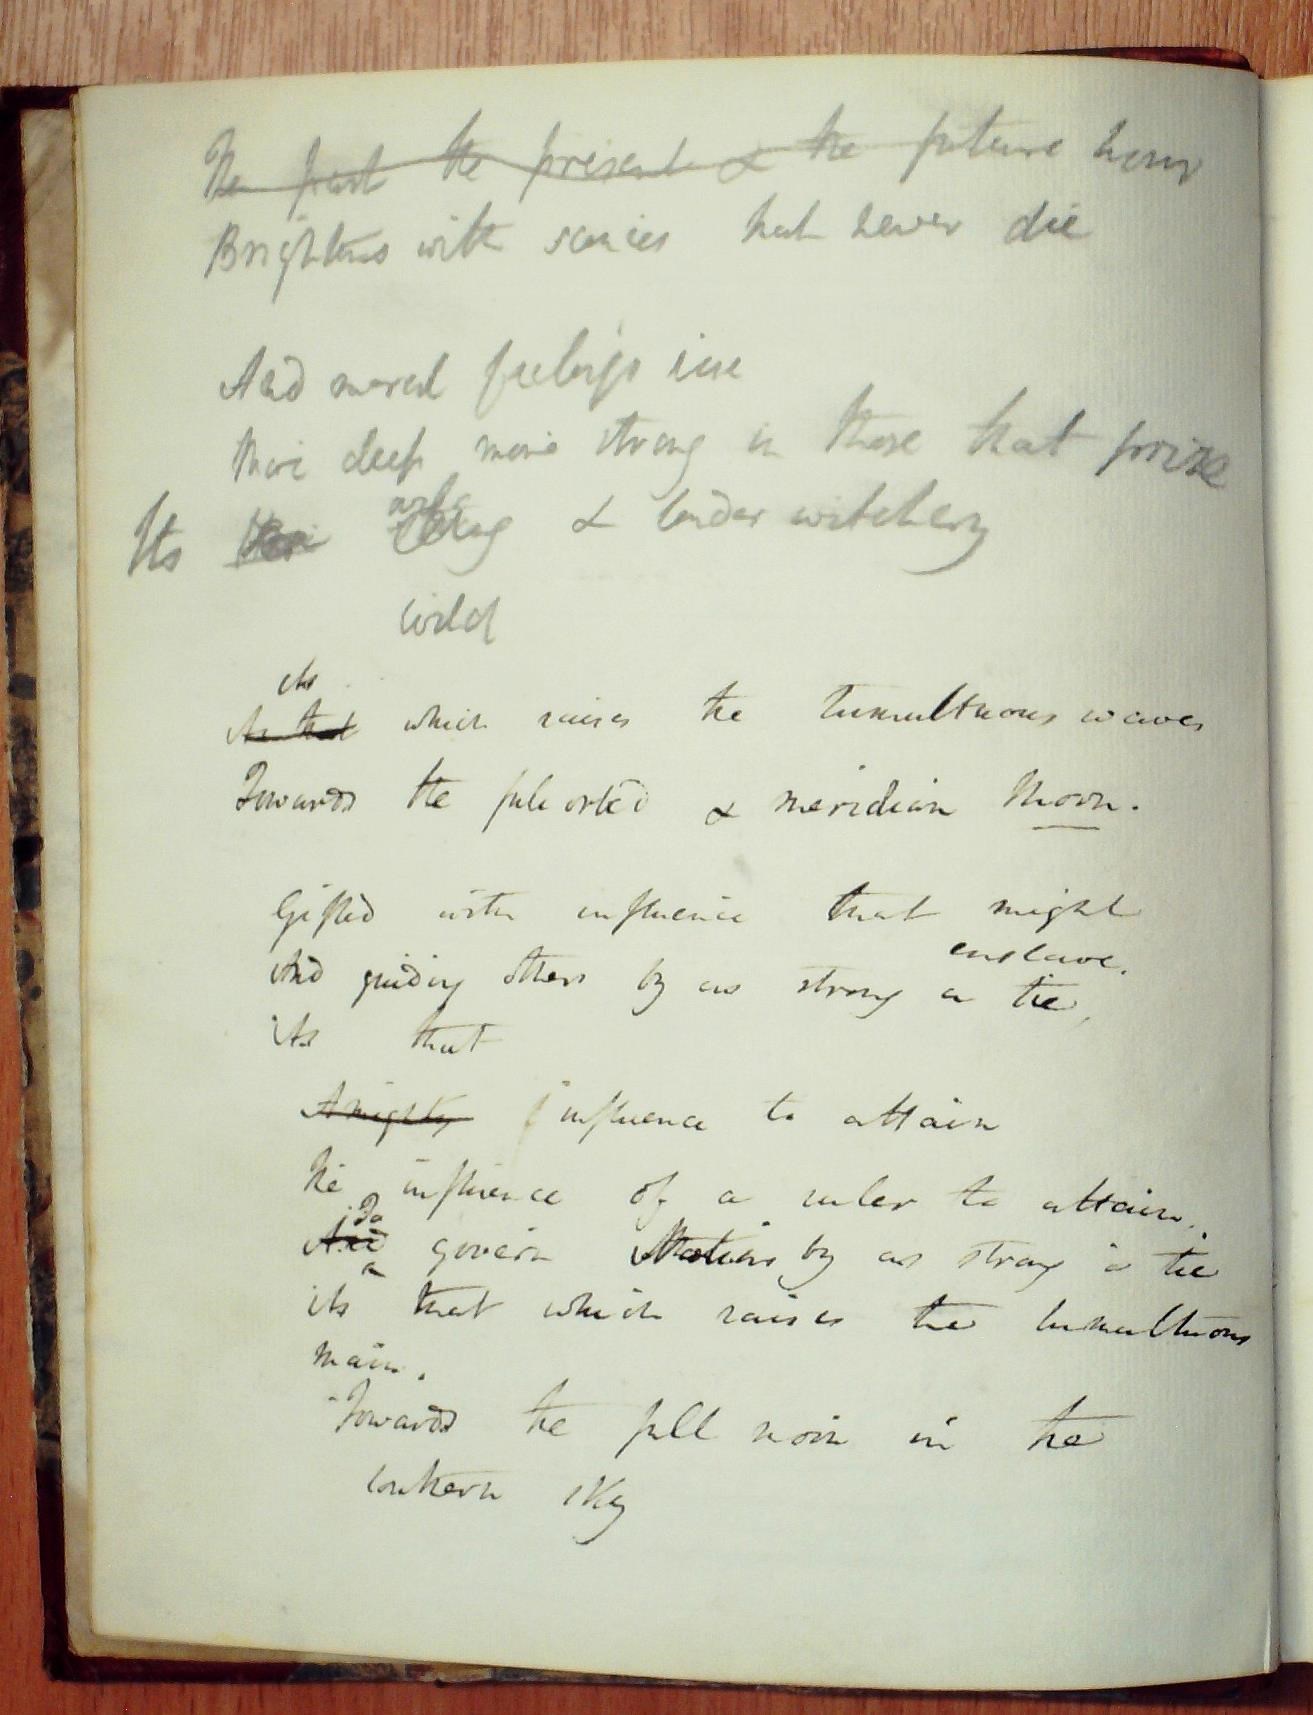 The past the present & the future hour
Brightens with scenes that never die
And moral feelings rise
More deep more strong in those that prize
Its & tender witchery
wild
As
As that which raises the tumultuous waves
Towards the full orbed & meridian Moon.
Gifted with influence that might
enslave.
And guiding others by as strong a tie,
As that
A mighty influence to attain
The influence of a ruler to attain.
To
And govern Nations by as strong a tie
As that which raises the tumultuous
main.
Towards the full moon in the
southern sky